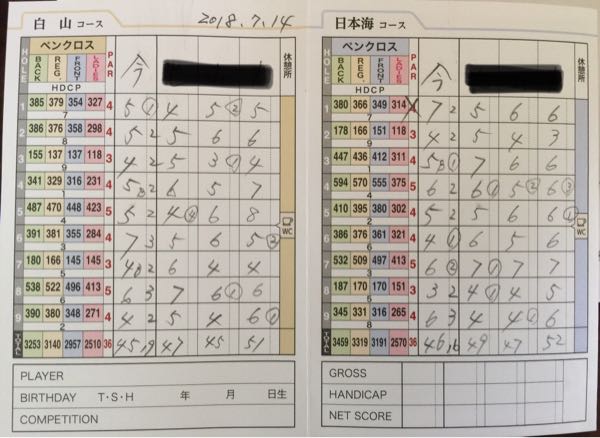 白山 コース 2018.7.14
HOLE ペンクロス PAR 今 休憩所
BACK REG. FRONT LADIES
HDCP
1 385 379 354 327 4 5 ① 4 5 ② 5
7
2 386 376 358 298 4 5 2 5 6 6
9
3 155 137 137 118 3 4 2 5 3 ① 4
4 341 329 316 231 4 5 2 6 5 7
5 487 470 448 423 5 5 2 4 ④ 6 8
4 WC
6 391 381 355 284 4 7 3 5 6 5 ②
3
7 180 166 145 145 3 4 2 6 4 4
8 538 522 496 413 5 6 3 7 6 ① 6
6
9 390 380 348 271 4 4 2 5 4 6 ①
2
TOTAL 3253 3140 2957 2510 36 45,19 47 45 51
PLAYER
BIRTHDAY T・S・H 年 月 日生
COMPETITION
日本海 コース
HOLE ペンクロス PAR 今 休憩所
BACK REG. FRONT LADIES
HDCP
1 380 366 349 314 4 7 2 5 6 6
7
2 178 166 151 118 3 4 2 5 4 3
9
3 447 436 412 311 4 5 ① 7 6 6
4 594 570 555 375 5 6 2 6 ① 5 ② 6 ③
4
5 410 395 380 302 4 5 2 5 6 6
2 WC
6 386 376 361 321 4 4 ① 6 5 6
7 532 509 497 413 5 6 ② 7 ① 7 7
8 187 170 170 151 3 3 2 4 ① 4 5
9 345 331 316 265 4 6 3 4 4 ① 6
TOTAL 3459 3319 3191 2570 36 46,16 49 47 52
GROSS
HANDICAP
NET SCORE